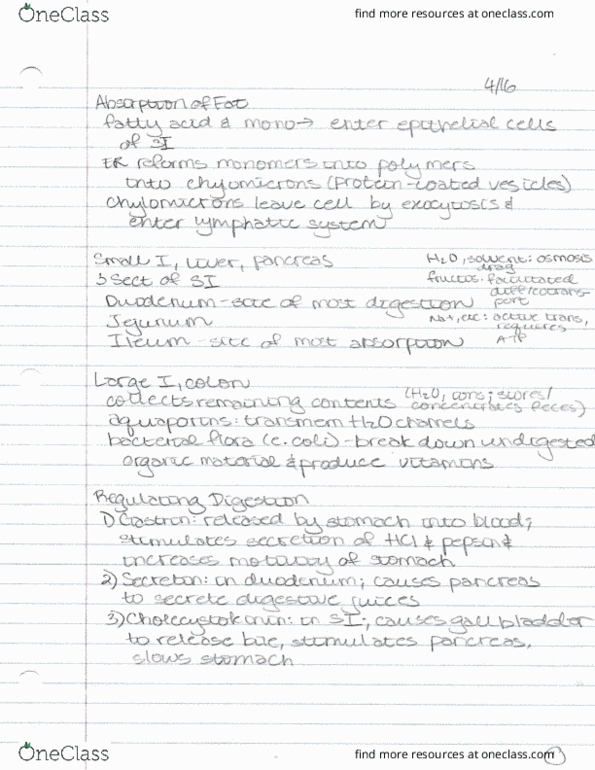 OneClass
find more resources at oneclass.com
4/16
Absorption of Fat
fatty acid & mono → enter epithelial cells
of SI
ER reforms monomers into polymers
into chylomicrons (protein-coated vesicles)
chylomicrons leave cell by exocytosis &
enter lymphatic system
Small I, liver, pancreas
3 Sect of SI
Duodenum - site of most digestion
Jejunum
Ileum - site of most absorption
H₂O, solvent: osmosis
drag
fructos: facilitated
diff/cotrans-
port
Na+, etc: active trans,
requires
ATP
Large I, colon
collects remaining contents (H₂O, ions; stores/
concentrates feces)
aquaporins: transmem H₂O channels
bacterial flora (e. coli) - break down undigested
organic material & produce vitamins
Regulating Digestion
1) Gastrin: released by stomach into blood;
stimulates secretion of HCl & pepsin &
increases motility of stomach
2) Secretin: in duodenium; causes pancreas
to secrete digestive juices
3) Cholecystokinin: in SI; causes gall bladder
to release bile, stimulates pancreas,
slows stomach
OneClass
find more resources at oneclass.com